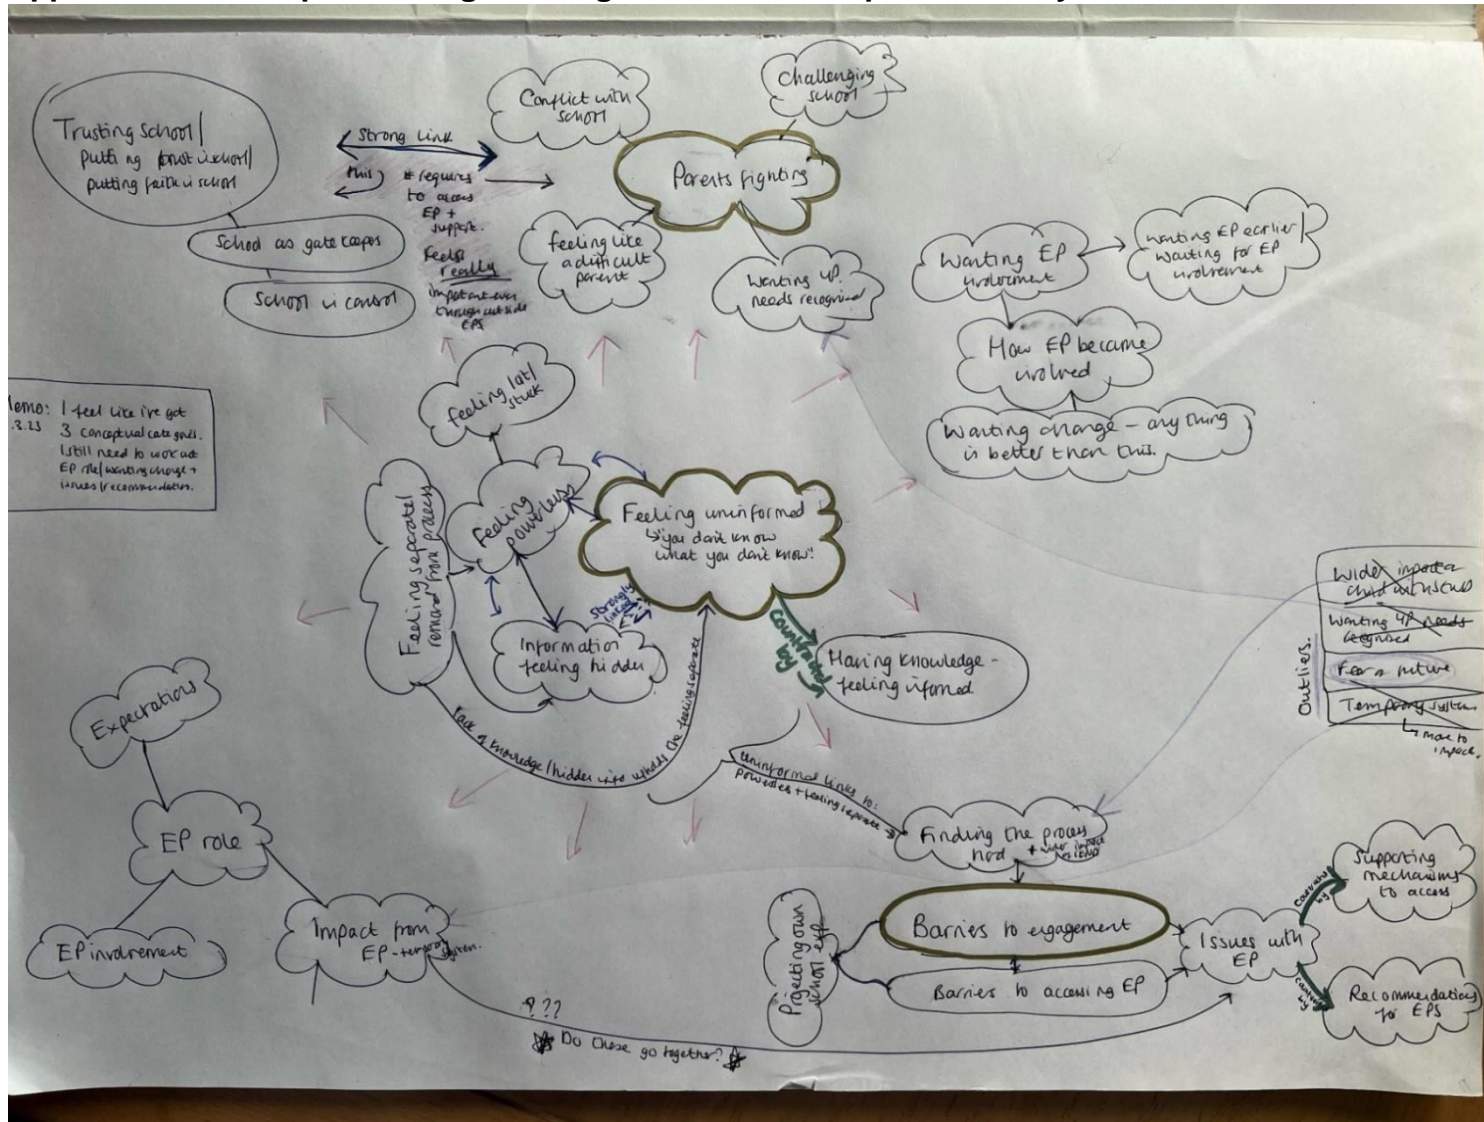 Challenging
school
Conflict with
school
Trusting school/
putting trust in school/
putting faith in school
Strong link
this
# requires
to access
EP +
support.
Feels
really
important even
through outside
EPS
Parents fighting
School as gatekeeper
School in control
feeling like
a difficult
parent
Wanting YP.
needs recognised
Wanting EP
involvement
Wanting EP earlier/
waiting for EP
involvement
How EP became
involved
Wanting change - anything
is better than this.
feeling lost/
stuck
Memo: I feel like i've got
.3.23 3 conceptual categories.
I still need to work out
EP role/wanting change +
issues/recommendations.
Feeling separate/
removed from process
Feeling
powerless
Feeling uninformed
↳ "you don't know
what you don't know"
Strongly
linked
Information
feeling hidden
countered
by
Having knowledge -
feeling informed
lack of knowledge/hidden info upholds the feeling separate
uninformed links to:
powerless + feeling separate
Outliers.
Wider impact on
child
Wanting YP needs
recognised
Fear of future
Temporary system
↳ move to
impact.
Expectations
EP role
EP involvement
Impact from
EP - temporary system.
Finding the process
hard + wider impact
Barriers to engagement
Barriers to accessing EP
Projecting own
school exp.
Issues with
EP
Countered
by
Supporting
mechanisms
to access
countered
by
Recommendations
for EPS
???
Do these go together?